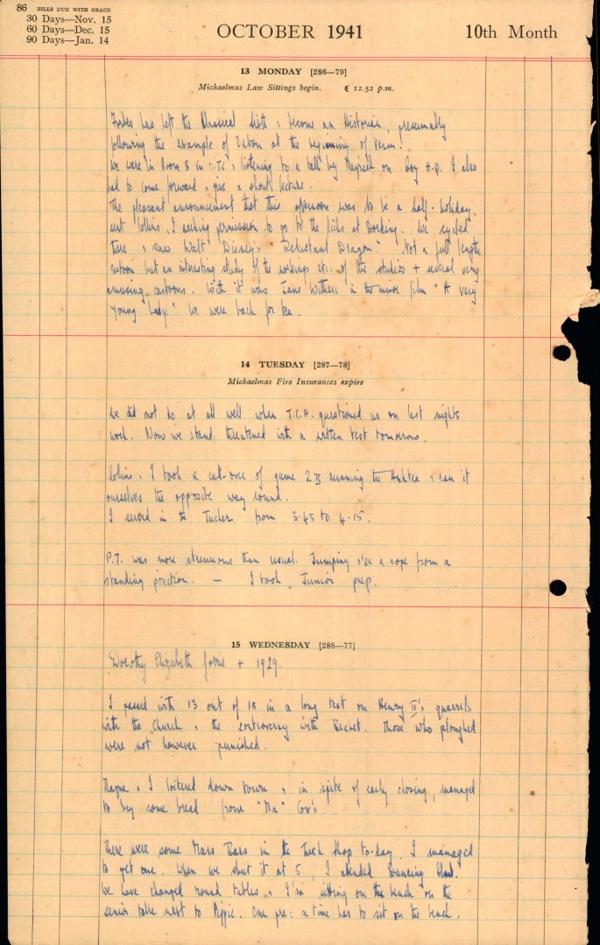 86 BILLS DUE WITH GRACE
30 Days—Nov. 15
60 Days—Dec. 15
90 Days—Jan. 14
OCTOBER 1941
10th Month
13 MONDAY [286—79]
Michaelmas Law Sittings begin. ☾ 12.52 p.m.
Forbes has left the Classical & become an Historian, presumably
following the example of at the beginning of term!
We were in Room 8 in listening to a talk by on H.P. I also
had to come forward & give a short lecture.
The pleasant announcement that this afternoon was to be a half-holiday,
sent Collins & I seeking permission to go to the flicks at We cycled
there & saw Walt Disney's "Reluctant Dragon". Not a full length
cartoon but an interesting study of the workings etc: of the studios + several very
amusing cartoons. With it was Jane Withers in the minor film "A very
Young Lady." We were back for tea.
14 TUESDAY [287—78]
Michaelmas Fire Insurances expire
We did not do at all well when T.C.H. questioned us on last nights
work. Now we stand threatened with a written test tomorrow.
Collins & I took a call-over of game 2B running the & ran it
ourselves the opposite way round.
I served in the Tucker from 3.45 to 4.15.
P.T. was more strenuous than usual. Jumping o'er a rope from a
standing position. — I took Junior prep.
15 WEDNESDAY [288—77]
Dorothy Elizabeth + 1929.
I passed with 13 out of 18 in a long test on Henry II's quarrels
with the Church & the controversy with Becket. Those who ploughed
were not however punished.
& I loitered down town & in spite of early closing, managed
to buy some bread from "Ma" Cox's.
There were some Mars Bars in the Tuck Shop to-day. I managed
to get one. When we shut it at 5, I attended Dancing
We have changed round tables & I'm sitting on the bench on the
senior table next to One pre: a time has to sit on the bench.